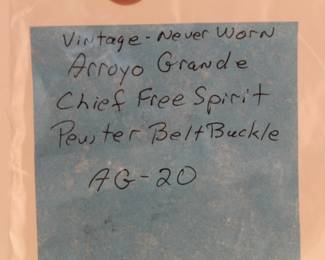 Vintage - Never Worn
Arroyo Grande
Chief Free Spirit
Pewter Belt Buckle
AG-20